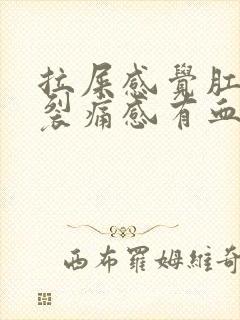 拉屎感覺肛
裂痛感有血
西布羅姆維奇